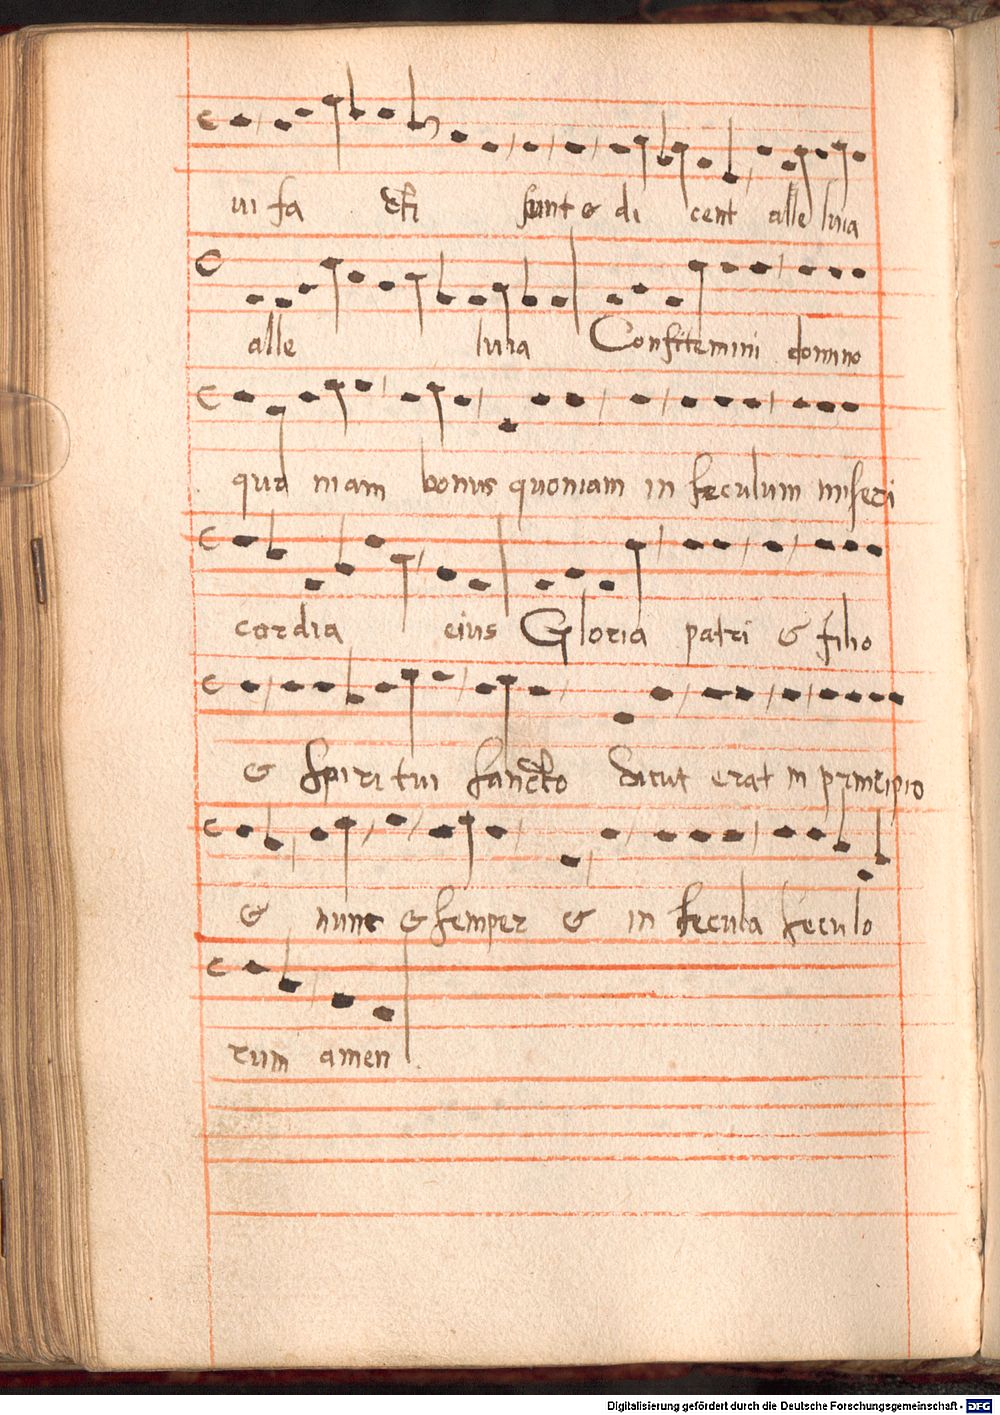 ui fa cti sunt & di cent alle luia
alle luia Confitemini domino
quo niam bonus quoniam in seculum miseri
cordia eius Gloria patri & filio
& spiri tui sancto Sicut erat in principio
& nunc & semper & in secula seculo
rum amen
Digitalisierung gefördert durch die Deutsche Forschungsgemeinschaft - DFG